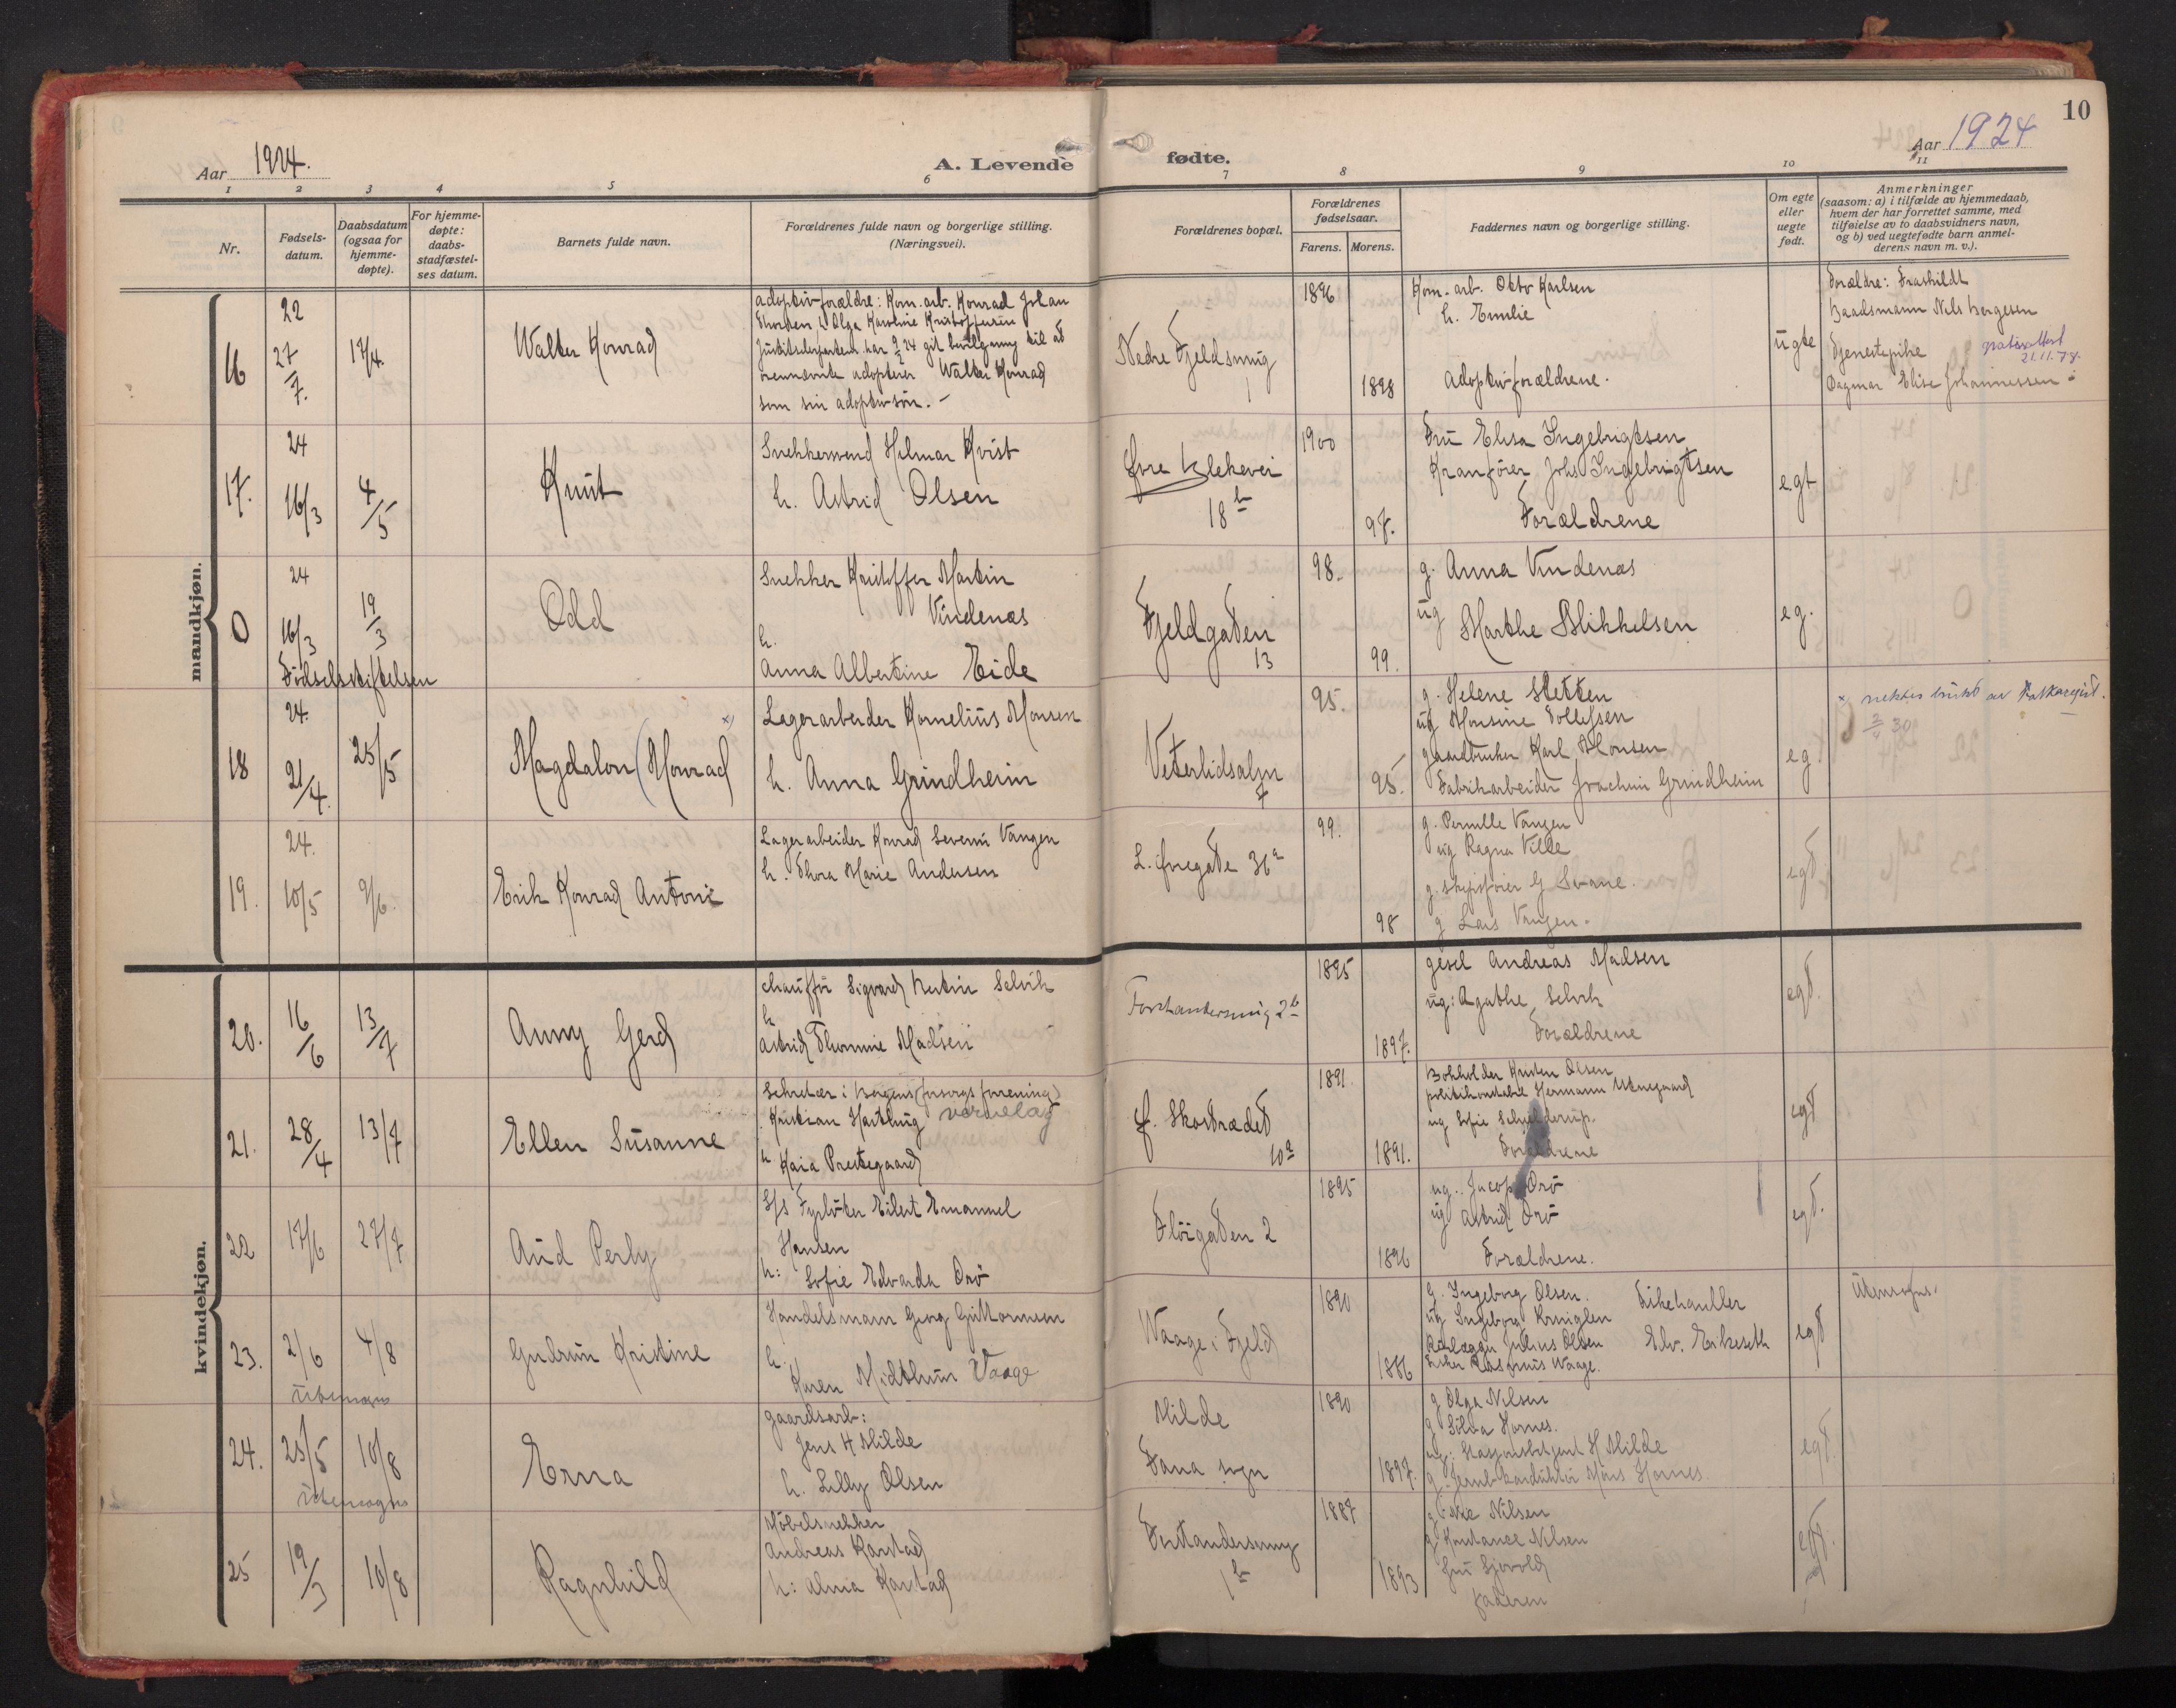 10
Aar 1924.
A. Levende fødte.
Aar 1924
1 2 3 4 5 6 7 8 9 10 11
Nr.
Fødsels-
datum.
Daabsdatum
(ogsaa for
hjemme-
døpte).
For hjemme-
døpte:
daabs-
stadfæstel-
ses datum.
Barnets fulde navn.
Forældrenes fulde navn og borgerlige stilling.
(Næringsvei).
Forældrenes bopæl.
Forældrenes
fødselsaar.
Farens. Morens.
Faddernes navn og borgerlige stilling.
Om egte
eller
uegte
født.
Anmerkninger
(saasom: a) i tilfælde av hjemmedaab,
hvem der har forrettet samme, med
tilføielse av to daabsvidners navn,
og b) ved uegtefødte barn anmel-
derens navn m. v.).
mandkjøn.
16
22
27/7.
17/4.
Walter Konrad
adoptivforældre: Kom. arb. Konrad Johan
h. Olga Karoline Kristoffersen
har 24 git bevilgning til at
adopterer Walter Konrad
som sin adoptivsøn. -
Nedre Fjeldsmug
1
1896
1898
Kom. arb. Otto Karlsen
h. Emilie
adoptivforældrene.
ugte
Forældre: Fraskildt
Baadsmann Nels Borgesen
Tjenestepike
21.11.78.
Dagmar Elise Johannessen
17.
24
16/3
4/5
Knut
Snekkersvend Hilmar Kvist
h. Astrid Olsen
Øvre Blekevei
18 b
1900
97.
Fru Elisa Ingebrigtsen
Kranfører Johs Ingebrigtsen
Forældrene
egt
0
24
16/3
19/3
Fødselsstiftelsen
Odd
Snekker Kristoffer Martin
Vindenæs
h.
Anna Albertine Eide
Fjeldgaten
13
98.
99.
g. Anna Vindenæs
ug Marthe Mikkelsen
eg.
18
24.
21/4.
25/5
Magdalon (Monrad x)
Lagerarbeider Kornelius Monsen
h. Anna Grindheim
Veterlidsalm
7
95.
95.
g. Helene Sletten
ug Monsine Tollefsen
gaardbruker Karl Monsen
Fabrikarbeider Joachim Grindheim
eg
x) nektes brukt av
30
19.
24.
10/5
9/6.
Erik Konrad Antoni
Lagerarbeider Konrad Severin Vangen
h. Thora Marie Andersen
L. Øvregate 36 a
99.
98
g. Pernille Vangen
ug Ragna Ville
g. skipsfører G Svane.
g Lars Vangen.
egt
kvindekjøn.
20.
16/6
13/7
Anny Gerd
chauffør Sigvard Martin Selvik
h
Astrid Thomine Madsen
Forstandersmug 2 b
1895
1897.
gesel Andreas Madsen
ug: Agathe Selvik
Forældrene
egt.
21.
28/4
13/7
Ellen Susanne
Sekretær i Bergens (forsorgsforening)
Kristian Hartling vernelag
h Kaia Prestegaard
f. Skostrædet
10 a
1891.
1891.
Bokholder Kristen Olsen
politikonstabel Hermann
ug Sofie Schjelderup.
Forældrene
egt
22
17/6
27/7
Aud Perly
S/s Fyrbøter Eilert Emanuel
Hansen
h: Sofie Edvarda Orø
Fløigaten 2
1895
1896
ug. Jacob Orø
ug Astrid Orø
Forældrene.
egt.
23.
2/6
4/8
Utensogns
Gudrun Kristine
Handelsmann Georg Guttormsen
h.
Karen Midthun Vaage
Waage i Fjeld
1890
1886
g. Ingeborg Olsen. Fiskehandler
ug Ingeborg Kringlen
Julius Olsen Edv. Eikeseth
Fisker Rasmus Waage.
egt
Utensogns.
24.
25/5
10/8
Utensogns
Erna
gaardsarb:
Jens H Milde
h. Lilly Olsen
Milde
Fana sogn
1890
1897.
g Olga Nilsen
g Silva Hornes.
ug: Stasjonsbetjent H Milde
g. Jernb. konduktør Mons Hornes.
egt.
25
19/3
10/8
Ragnhild
Møbelsnekker
Andreas Karstad
h: Alvia Karstad
Forstandersmug
1 b
1887
1893
g Nilsen
g Konstance Nilsen
fru Sjovold
faderen
egt.